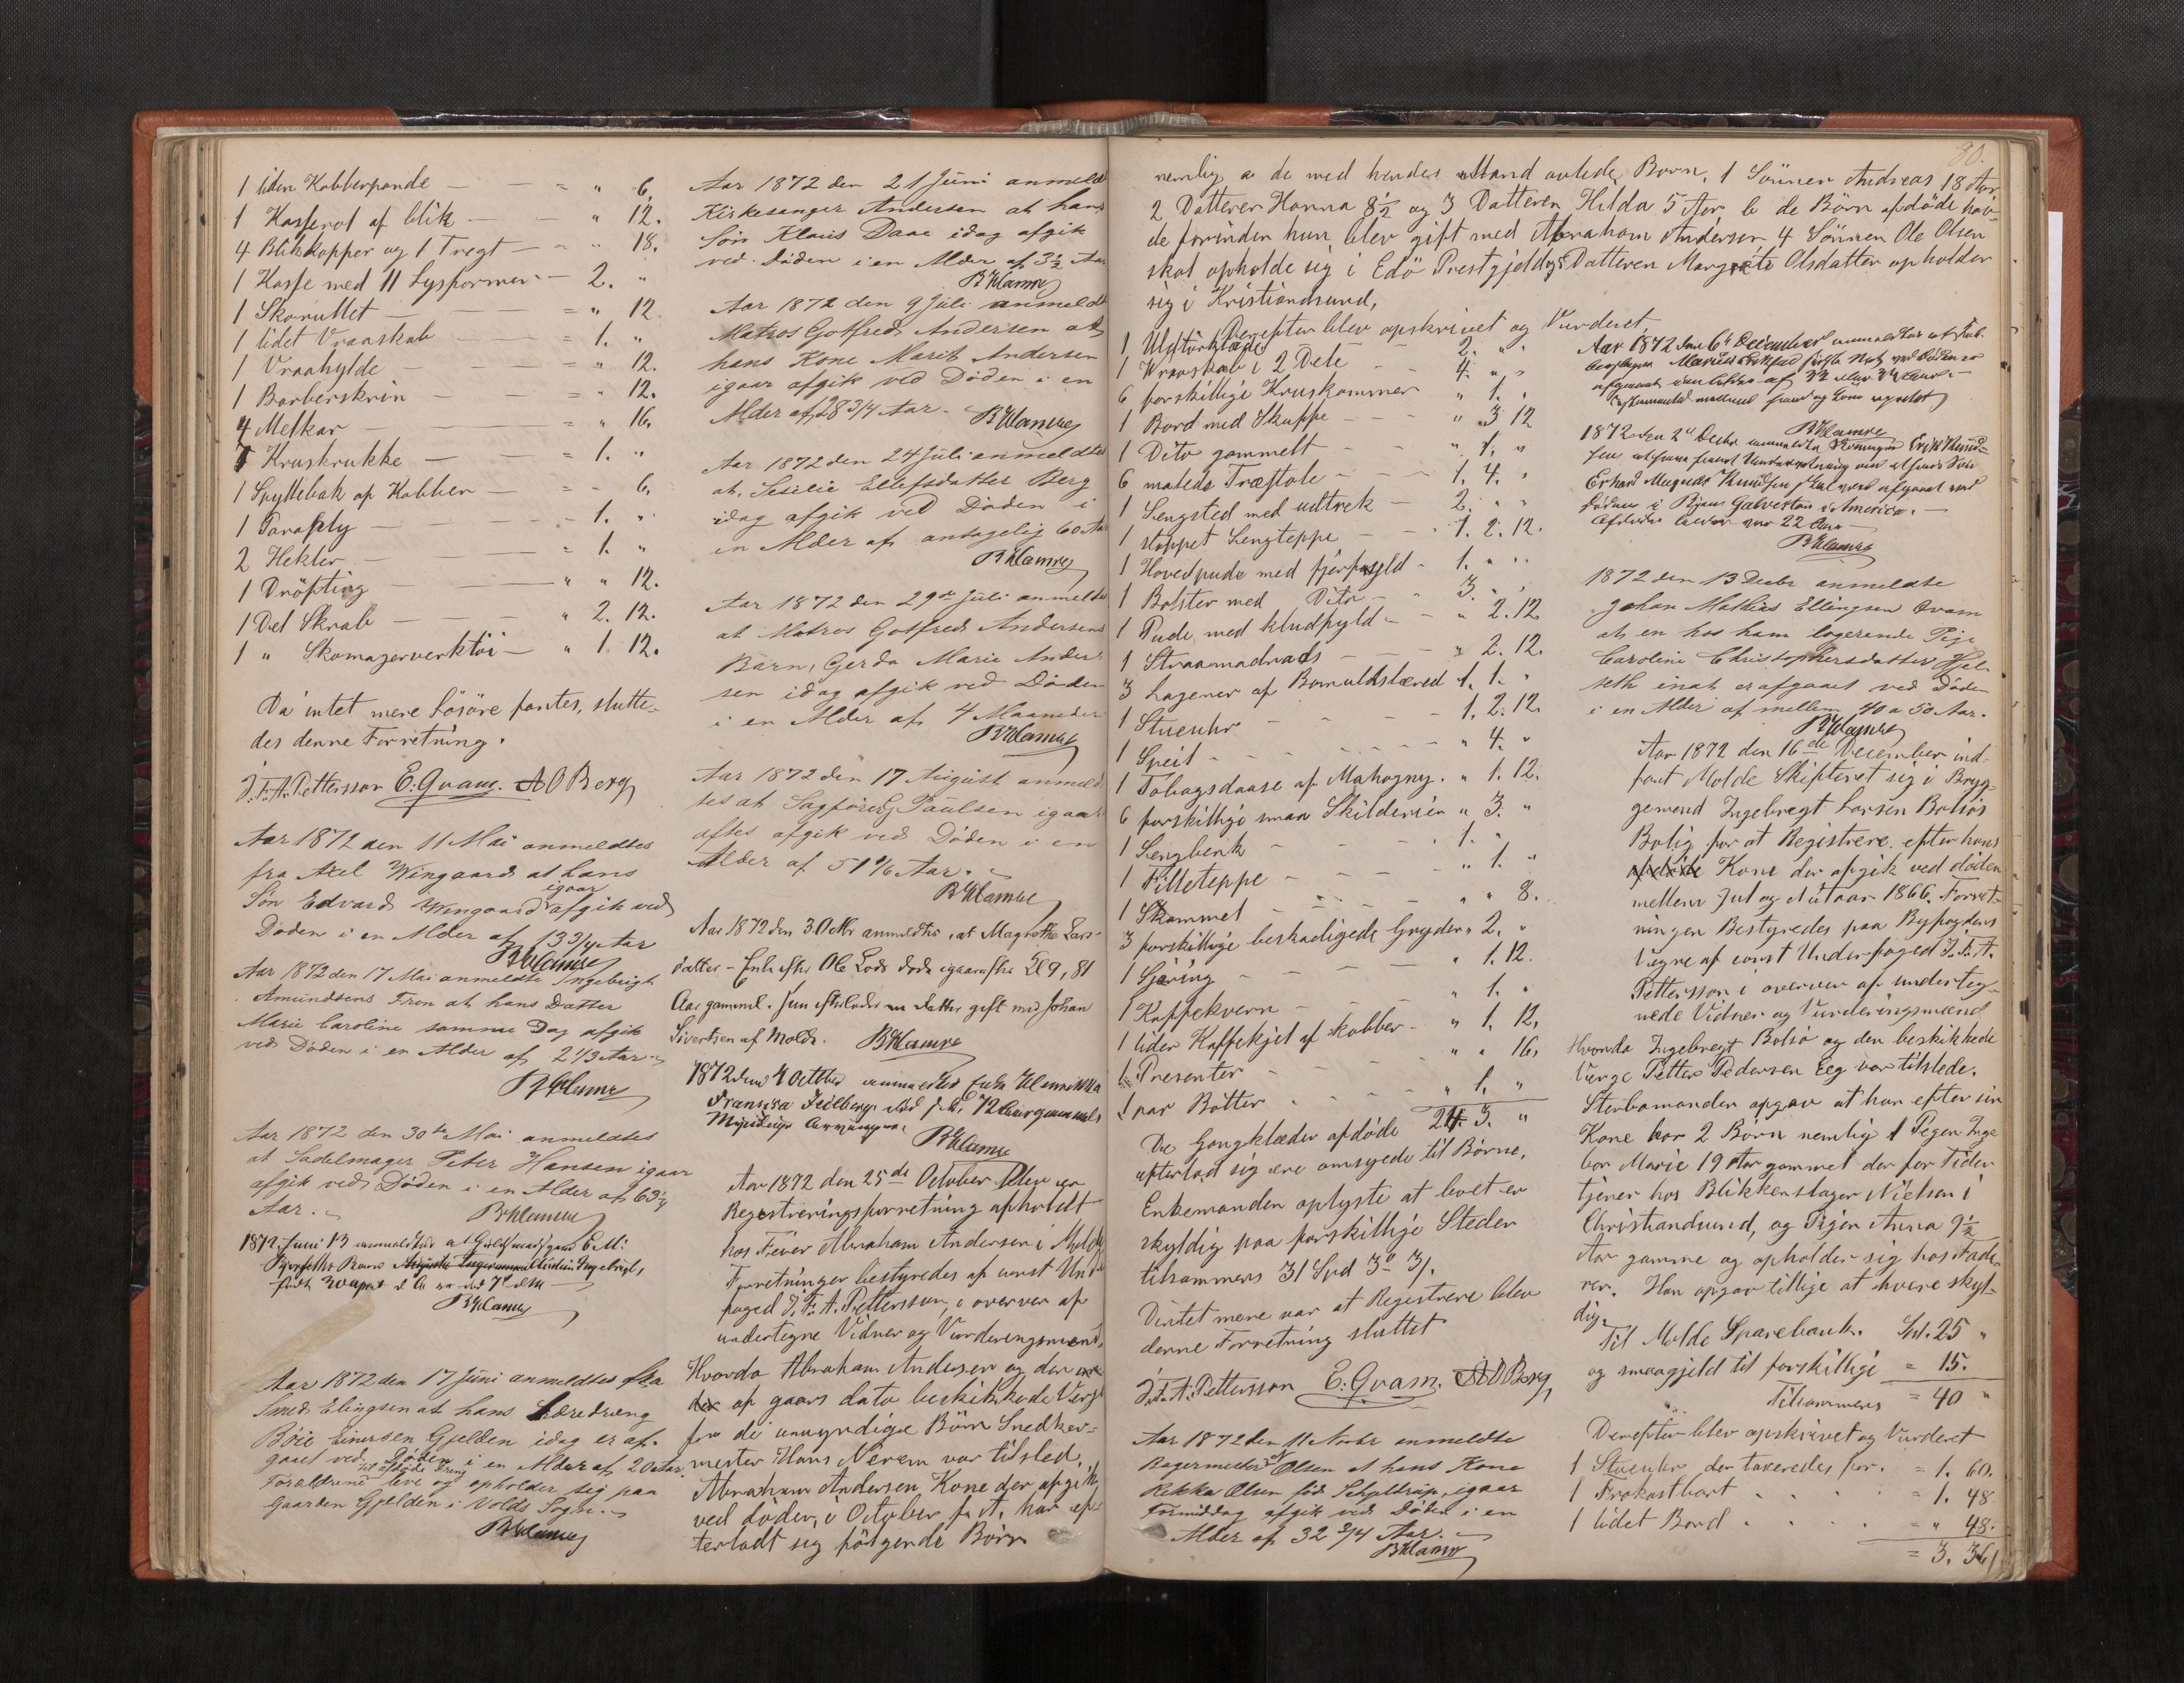 1 liden Kobberpande — = " 6,
1 Kasserol af blik — " 12.
4 Blikkopper og 1 Tregt — = " 18.
1 Kasse med 11 Lysformer — 2. "
1 Skorullet — = " 12
1 lidet Vraaskab — = 1. "
1 Vraahylde — = " 12.
1 Barberskrin — = " 12.
4 Melkar — = " 16.
7 Kruskrukke — = 1. "
1 Spyttebak af Kobber — = - 6.
1 Paraply — - 1. "
2 Hekler — = 1. "
1 Dröfting — " " 12.
1 Del Skrab — " 2. 12.
1 " Skomagerverktöi — " 1. 12.
Da intet mere Lösöre fantes, slutte-
des denne Forretning.
J.F.A. Pettersson E. Qvam. A O Berg
Aar 1872 den 11 Mai anmeldtes
fra Axel Wingaard at hans
Søn Edvard Wingaard igaar afgik ved
Døden i en Alder af 13 3/4 Aar
B Klamre
Aar 1872 den 17 Mai anmeldte Ingebrigt
Amundsens Fron at hans Datter
Marie Caroline samme Dag afgik
ved Døden i en Alder af 2 1/3 Aar
B Klamre
Aar 1872 den 30te Mai anmeldtes
at Sadelmager Peter Hansen igaar
afgik ved Døden i en Alder af 63 1/4
Aar.
B Klamre
1872 Juni 13 anmeldtes at
B Klamre
Aar 1872 den 17 Juni anmeldtes fra
Smed Elingsen at hans Læredreng
Böie Einersen Gjelden idag er af-
gaaet ved Døden i en Alder af 20 Aar.
Forældrene til afdøde Dreng leve og opholder sig paa
Gaarden Gjelden i Volds Sogn.
B Klamre
Aar 1872 den 21 Juni anmeldte
Kirkesanger Andersen at hans
Søn Klaus Daae idag afgik
ved Døden i en Alder af 3 1/2 Aar
B Klamre
Aar 1872 den 9 Juli anmeldte
Matros Gotfred Andersen at
hans Kone Marit Andersen
igaar afgik ved Døden i en
Alder af 28 3/4 Aar.
B Klamre
Aar 1872 den 24 Juli anmeldtes
at Sesilie Ellefsdatter Berg
idag afgik ved Døden i
en Alder af antagelig 60 Aar
B Klamre
Aar 1872 den 29de Juli anmeldtes
at Matros Gotfred Andersens
Barn, Gerda Marie Ander-
sen idag afgik ved Døden
i en Alder af 4 Maaneder
B Klamre
Aar 1872 den 17 August anmeld-
tes at Sagfører Paulsen igaar
aftes afgik ved Døden i en
Alder af 51 1/6 Aar.
B Klamre
Aar 1872 den 3 Okt anmeldtes, at Magrethe Lars-
datter - Enke efter Ole Lode døde igaaraftes Kl 9, 81
Aar gammel. Hun efterlader en Datter gift med Johan
Sivertsen af Molde. B Klamre
1872 den 4 October anmeldtes
72 Aar gammel
B Klamre
Aar 1872 den 25de October blev en
Registreringsforretning afholdt
hos Fæver Abraham Andersen i Molde
Forretninger bestyredes af const Und
foged J. F. A. Pettersson, i overver af
undertegne Vidner og Vurderingsmænd,
Hvorda Abraham Andersen og den
af gaars dato beskikkede Verge
for de umyndige Börn Snedker-
mester Hans Nerem var tilsted.
Abraham Andersen Kone der afgik
ved döden, i October f. A. har ef-
terladt sig fölgende Börn
80.
nemlig a de med hendes Mand avlede Born, 1 Sönnen Andreas 18 Aar
2 Datteren Hanna 8 1/2 og 3 Datteren Hilda 5 Aar b de Börn afdöde hav-
de forinden hun blev gift med Abraham Andersen 4 Sönnen Ole Olsen
skal opholde sig i Edö Prestgjeld og 5 Datteren Margrete Olsdatter opholder
sig i Kristiansund,
Derefter blev opskrivet og Vurderet
1 Uldtörklæde 2. " "
1 Vraaskab i 2 Dele - - 4. " "
6 forskillige Kruskommer " 1. "
1 Bord med Skuffe - - " 3 12
1 Dito gammelt - - " 1. "
6 malede Træstole - - 1. 4. "
1 Sengsted med udtrek - 2. " "
1 stoppet Sengteppe - - 1. 2. 12.
1 Hovedpude med fjærfyld - 1. " "
1 Bolster med Dito - - 3. " "
1 Pude med kludfyld - - " 2. 12
1 Straamadrads - - " 2. 12.
3 Lagener af Bomuldslærred 1. 1. "
1 Stueuhr - - - 1. 2. 12.
1 Speil - - - - " 4. "
1 Tobagsdaase af Mahogny. " 1. 12.
6 forskillige smaa Skilderier " 3. "
1 Sengbenk - - - 1. "
1 Filleteppe - - - " 1. "
1 Skammel - - - " " 8.
3 forskillige beskadigede Gryder " 2. "
1 Gjæring - - - " 1. 12.
1 Kaffekvern - - " 1. "
1 liden Kaffekjel af Kobber - " 1. 12.
1 Presenter - - - " " 16.
1 par Bötter - - - " 1. "
24. 3. "
De Gangklæder afdöde
efterlod sig ere omsyede til Börne,
Enkemanden oplyste at boet er
skyldig paa forskillige Steder
tilsammens 31 Spd 3 " 3/.
Dintet mere var at Registrere blev
denne Forretning sluttet
J.F.A. Pettersson E. Qvam. A O Berg
Aar 1872 den 11 Novbr anmeldte
Bagermester Olsen at hans Kone
Rikka Olsen fød Schjeldrup, igaar
Formiddag afgik ved Døden i en
Alder af 32 3/4 Aar.
B Klamre
Aar 1872 den 6te December anmeldtes
B Klamre
1872 den 2den Decbr anmeldte Erik Knud-
sen
Erhard Magnus Knudsen
Døden i Byen Galveston i America.
22 Aar
B Klamre
1872 den 13 Decbr anmeldte
Johan Mathias Ellingsen Qvam
at en hos ham logerende Pige
Caroline Christophersdatter Hjel-
seth inat er afgaaet ved Døden
i en Alder af mellem 40 a 50 Aar.
B Klamre
Aar 1872 den 16de December ind-
fant Molde Skifteret sig i Bryg-
gemend Ingebregt Larsen Bolsös
Bolig for at Registrere efter hans
afdöde Kone der afgik ved döden
mellem Jul og Nütaar 1866. Forret-
ningen Bestyredes paa Byfogdens
Vegne af const Underfoged J. F. A.
Pettersson i overver af underteg-
nede Vidner og Vurderingsmænd
Hvorda Ingebregt Bolsö og den beskikkede
Verge Petter Pedersen Eeg var tilstede.
Sterbomanden opgav at han efter sin
Kone har 2 Börn nemlig 1 Pigen Inge
bor Marie 19 Aar gammel der for Tiden
tjener hos Blikkenslager Nielsen i
Christiansund, og Pigen Anna 9 1/2
Aar gamme og opholder sig hos Fade-
ren. Han opgav tillige at hvere skyl-
dig.
Til Molde Sparebank. Spd. 25 "
og smaagjeld til forskillige = 15.
Tilsammens = 40 "
Derefter blev opskrivet og Vurderet
1 Stueuhr der taxeredes for. = 1. 60.
1 Frokastbort . . . = 1. 48
1 lidet Bord . . . = " 48.
= 3. 36